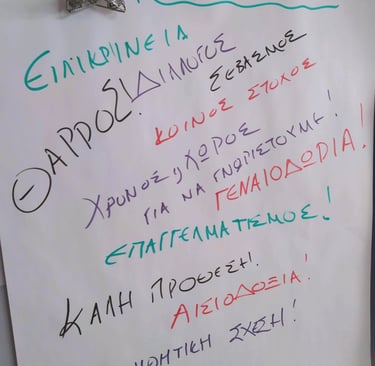 ΕΙΛΙΚΡΙΝΕΙΑ
ΘΑΡΡΟΣ! ΔΙΑΛΟΓΟΣ
ΣΕΒΑΣΜΟΣ
ΚΟΙΝΟΣ ΣΤΟΧΟΣ
ΧΡΟΝΟΣ ΧΩΡΟΣ
ΓΙΑ ΝΑ ΓΝΩΡΙΣΤΟΥΜΕ!
ΓΕΝΑΙΟΔΩΡΙΑ!
ΕΠΑΓΓΕΛΜΑΤΙΣΜΟΣ!
ΚΑΛΗ ΠΡΟΘΕΣΗ!
ΑΙΣΙΟΔΟΞΙΑ!
ΣΧΕΣΗ!